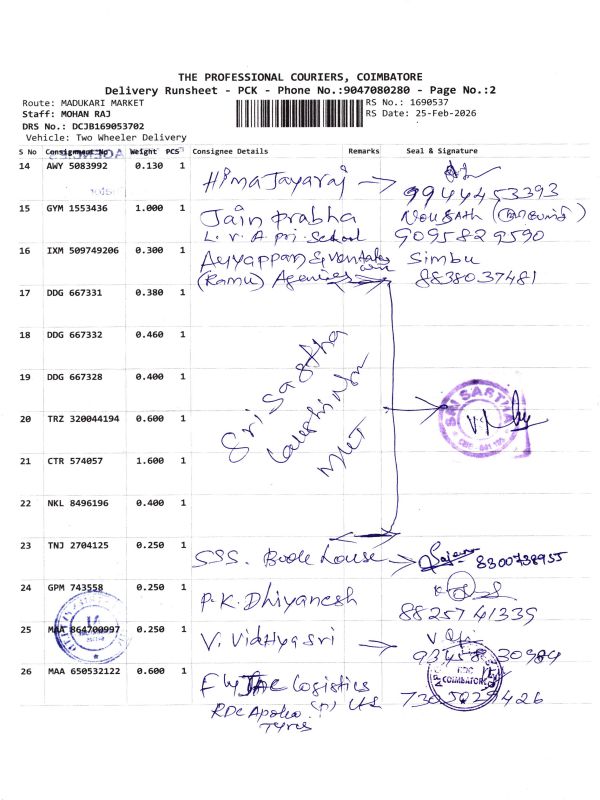 THE PROFESSIONAL COURIERS, COIMBATORE
Delivery Runsheet - PCK - Phone No.:9047080280 - Page No.:2
Route: MADUKARI MARKET
RS No.: 1690537
Staff: MOHAN RAJ
RS Date: 25-Feb-2026
DRS No.: DCJB169053702
Vehicle: Two Wheeler Delivery
S No Consignment No Weight PCS Consignee Details Remarks Seal & Signature
14 AWY 5083992 0.130 1 Hima Jayaraj
9944453393
15 GYM 1553436 1.000 1 Jain Prabha
L.V.A pri. School 9095829590
16 IXM 509749206 0.300 1 Ayyappan & Simbu
(Ramu) Agencies 8838037481
17 DDG 667331 0.380 1
18 DDG 667332 0.460 1
19 DDG 667328 0.400 1
Sri Sastha
Lakshmi
20 TRZ 320044194 0.600 1
SRI SASTHA
21 CTR 574057 1.600 1
22 NKL 8496196 0.400 1
23 TNJ 2704125 0.250 1 SSS. Book House 8300738955
24 GPM 743558 0.250 1 P.K. Dhiyanesh
8825741339
25 MAA 864700997 0.250 1 V. Vidhya Sri
26 MAA 650532122 0.600 1 Logistics
COIMBATORE
RDC Apollo
Tyres